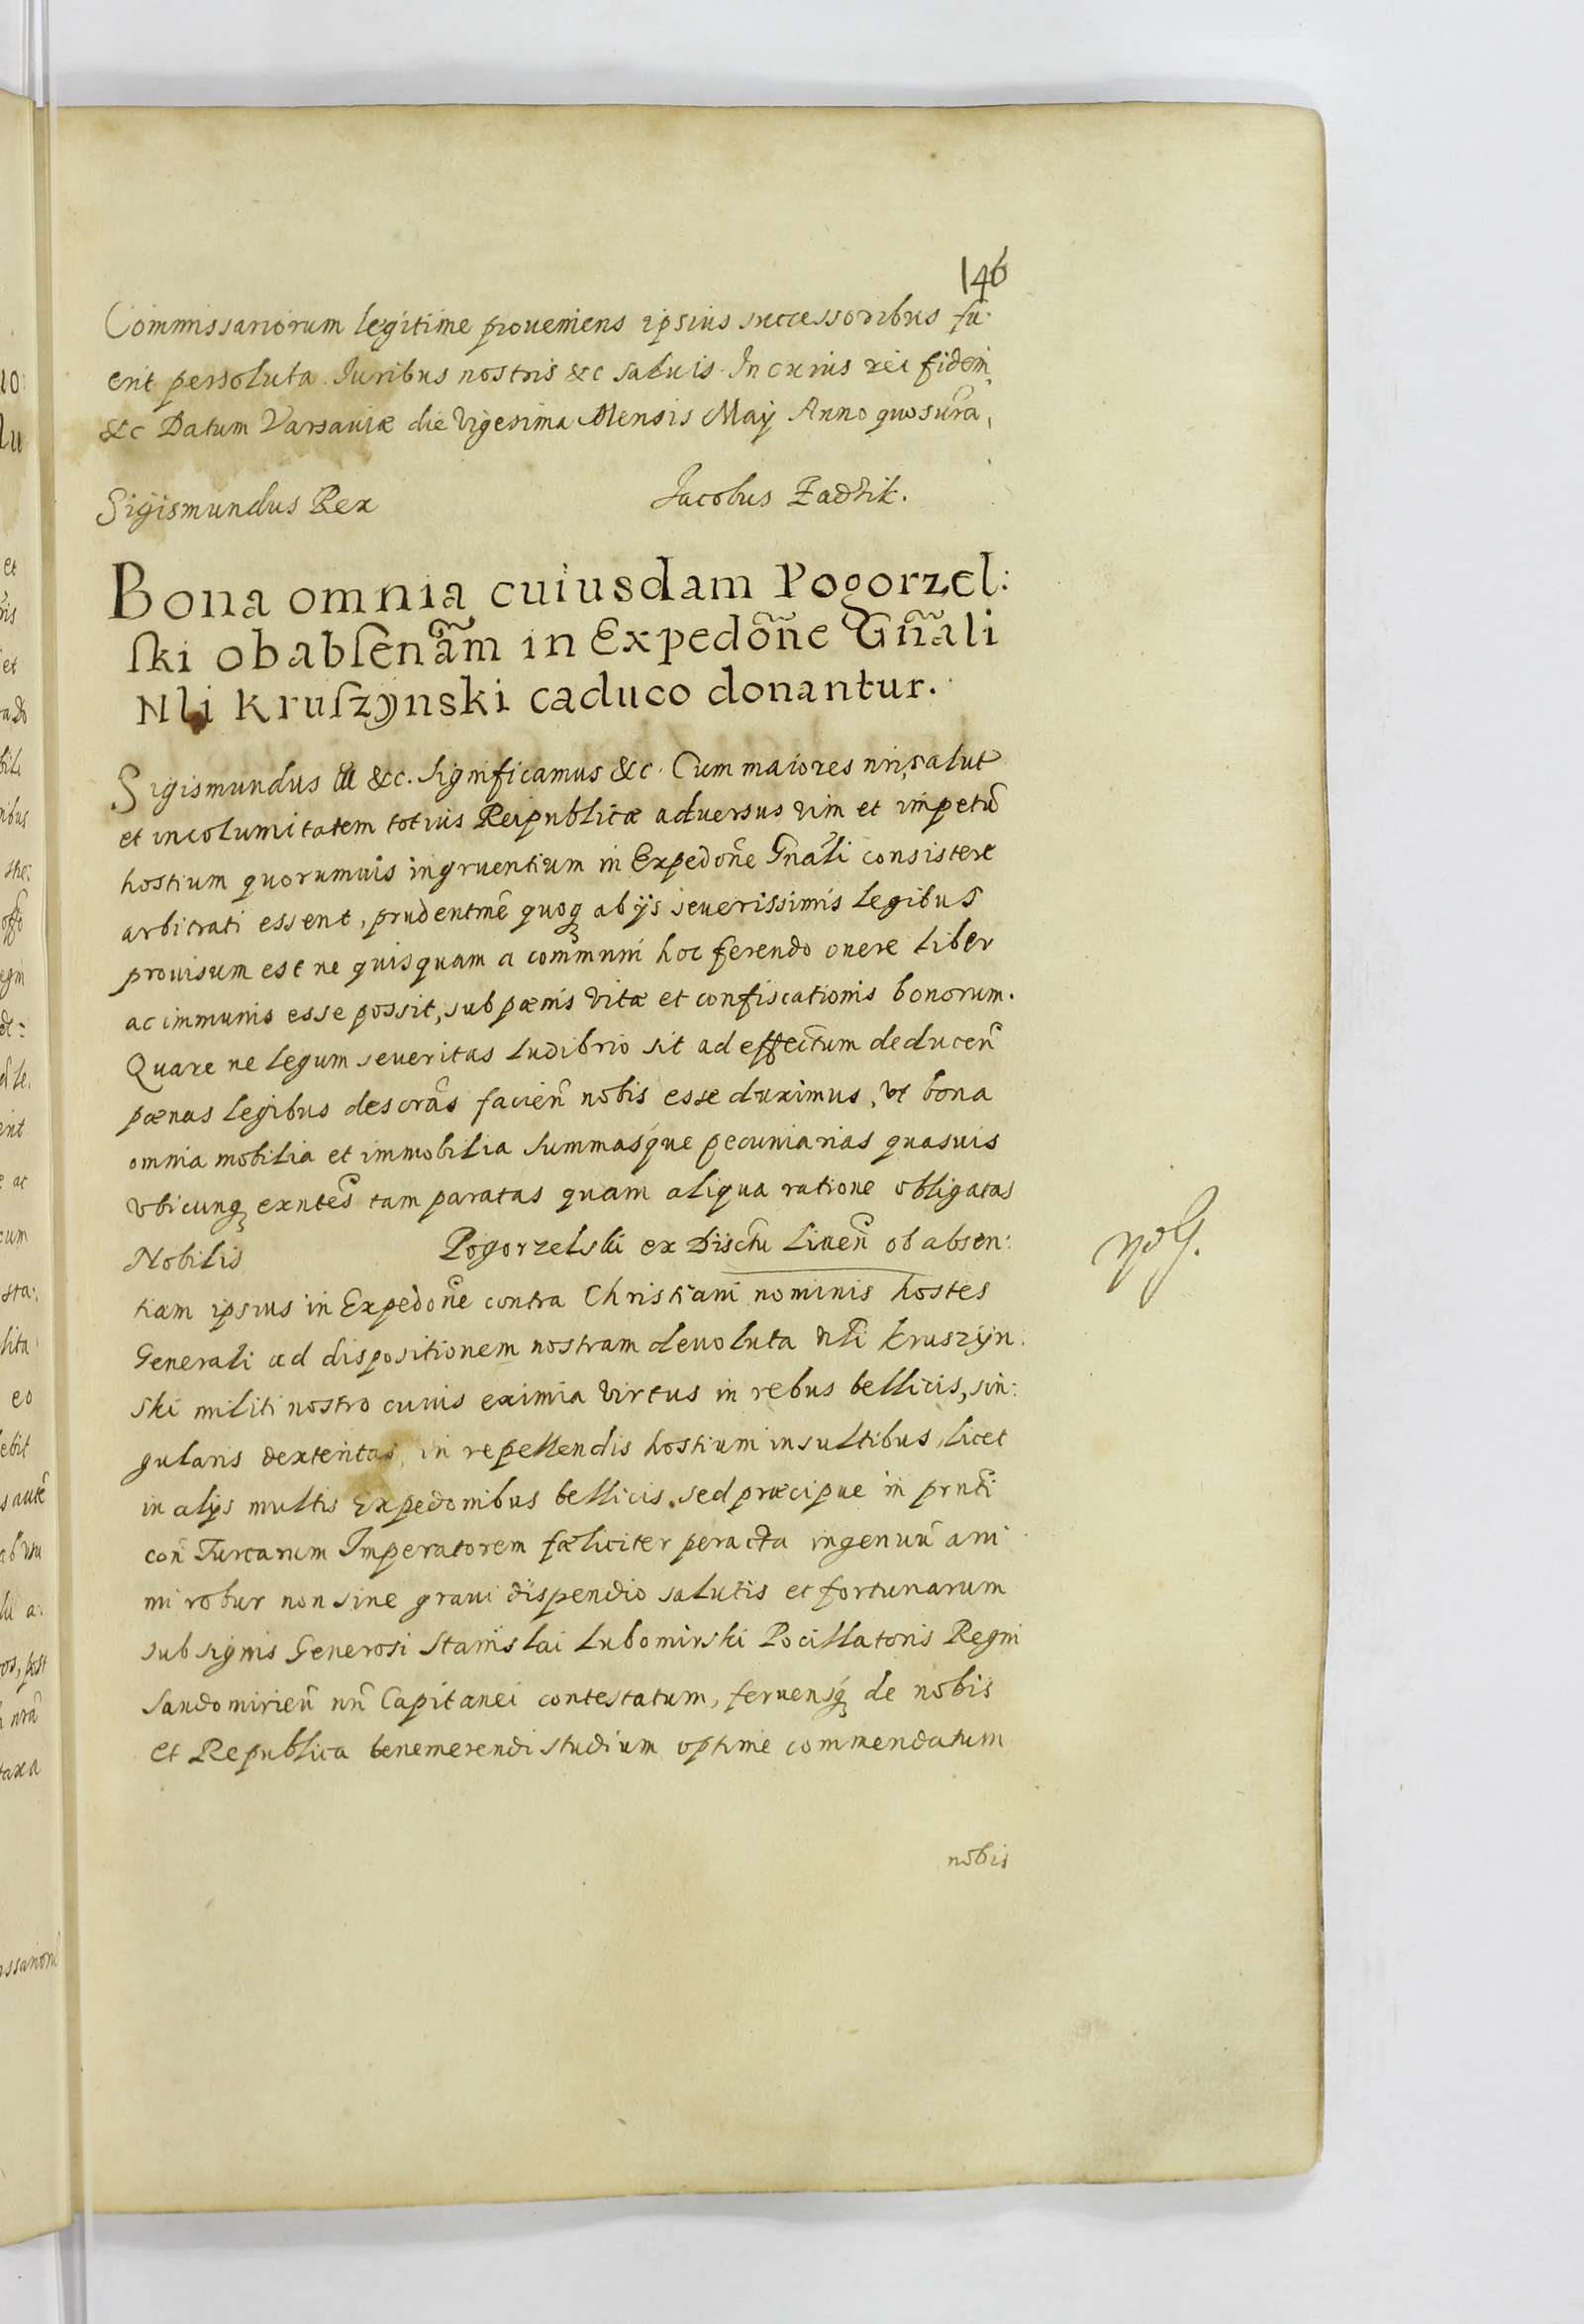 146
Commissariorum legitime proueniens ipsius successoribus fu:
erit persoluta. Iuribus nostris &c saluis. In cuius rei fidem
&c Datum Varsauiæ die vigesima Mensis Maÿ Anno quo supra,
Sigismundus Rex Jacobus Zadzik.
Bona omnia cuiusdam Pogorzel:
ski ob absen̄am in Expedōne Gn̄ali
Nli Kruszÿnski caduco donantur.
Sigismundus III &c. Significamus &c. Cum maiores nri, salutē
et incolumitatem totius Reipublicæ aduersus vim et impetū
hostium quorumuis ingruentium in Expedōne Gn̄ali consistere
arbitrati essent, prudentm̄e quoq ab ijs seuerissimis legibus
prouisum est ne quisquam a communi hoc ferendo onere liber
ac immunis esse possit, sub pænis vitæ et confiscationis bonorum.
Quare ne legum seueritas ludibrio sit ad effectum deducen̄
pœnas legibus descrās facien̄ nobis esse duximus, vt bona
omnia mobilia et immobilia summasq́ue pecuniarias quasuis
vbicunq exn̄tes tam paratas quam aliqua ratione obligatas
Nobilis Pogorzelski ex Districtu Liuen̄ ob absen:
tiam ipsius in Expedōne contra Christiani nominis hostes
Generali ad dispositionem nostram deuoluta Nli Kruszÿn:
ski militi nostro cuius eximia virtus in rebus bellicis, sin:
gularis dexteritas in repellendis hostium insultibus, licet
in alijs multis Expedonibus bellicis, sed præcipue in prn̄ti
con̄ Turcarum Imperatorem fæliciter peracta ingenuū ani
mi robur non sine graui dispendio salutis et fortunarum
sub signis Generosi Stanislai Lubomirski Pocillatoris Regni
Sandomirien̄ nn̄ Capitanei contestatum, feruensq́ de nobis
et Republica benemerendi studium optime commendatum
nobis